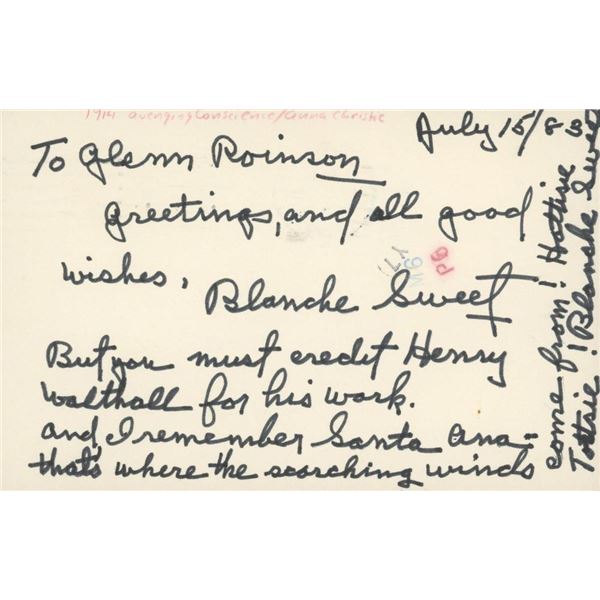 1914 avenging Conscience/Anna Christie
July 15/83
To Glenn Roinson
greetings, and all good
wishes,
Blanche Sweet
But you must credit Henry
Walthall for his work.
and, I remember Santa Ana-
that's where the scorching winds
come from! Hottsie
Tottsie! Blanche Sweet